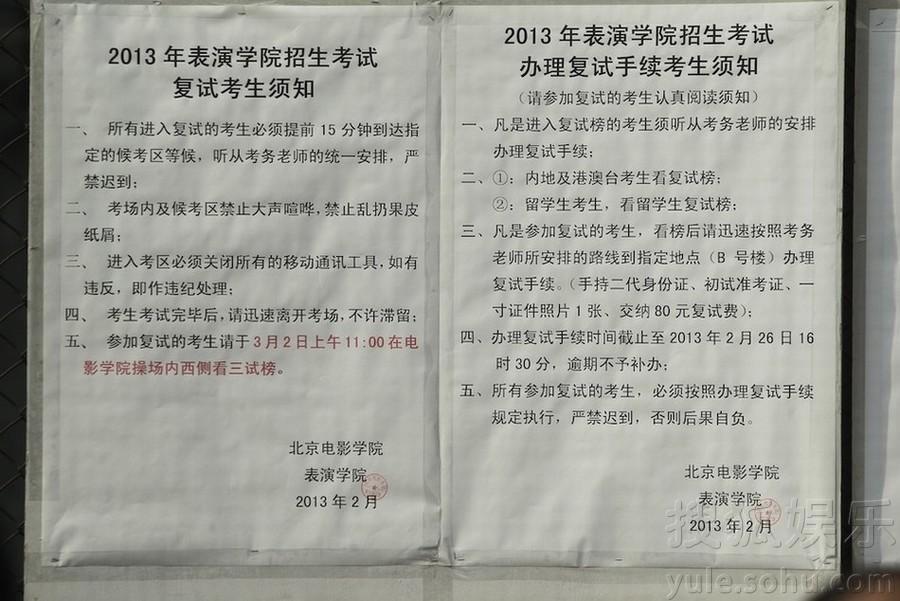 2013年表演学院招生考试
复试考生须知
一、 所有进入复试的考生必须提前15分钟到达指
定的候考区等候，听从考务老师的统一安排，严
禁迟到；
二、 考场内及候考区禁止大声喧哗，禁止乱扔果皮
纸屑；
三、 进入考区必须关闭所有的移动通讯工具，如有
违反，即作违纪处理；
四、 考生考试完毕后，请迅速离开考场，不许滞留；
五、 参加复试的考生请于3月2日上午11:00在电
影学院操场内西侧看三试榜。
北京电影学院
表演学院
2013年2月
2013年表演学院招生考试
办理复试手续考生须知
（请参加复试的考生认真阅读须知）
一、凡是进入复试榜的考生须听从考务老师的安排
办理复试手续；
二、①：内地及港澳台考生看复试榜；
②：留学生考生，看留学生复试榜；
三、凡是参加复试的考生，看榜后请迅速按照考务
老师所安排的路线到指定地点（B号楼）办理
复试手续。（手持二代身份证、初试准考证、一
寸证件照片1张、交纳80元复试费）；
四、办理复试手续时间截止至2013年2月26日16
时30分，逾期不予补办；
五、所有参加复试的考生，必须按照办理复试手续
规定执行，严禁迟到，否则后果自负。
北京电影学院
表演学院
2013年2月
搜狐娱乐
yule.sohu.com